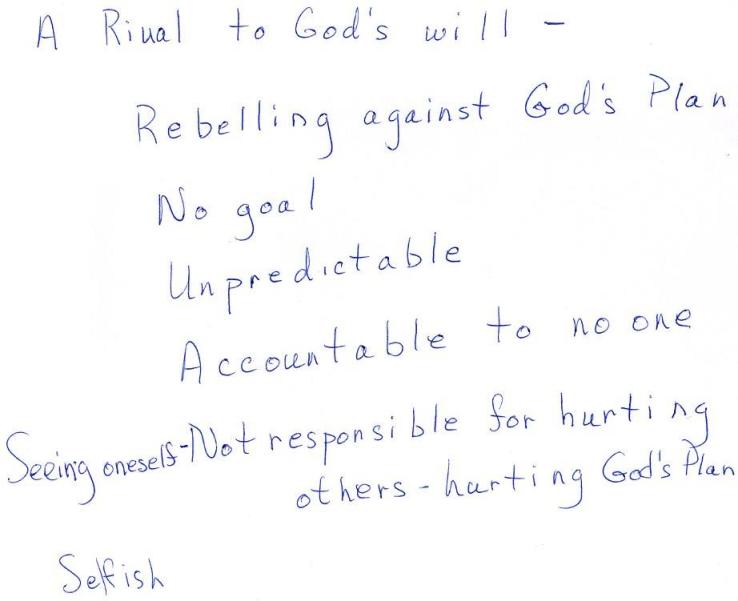 A Rival to God's will -
Rebelling against God's Plan
No goal
Unpredictable
Accountable to no one
Seeing oneself-Not responsible for hurting
others-hurting God's Plan
Selfish